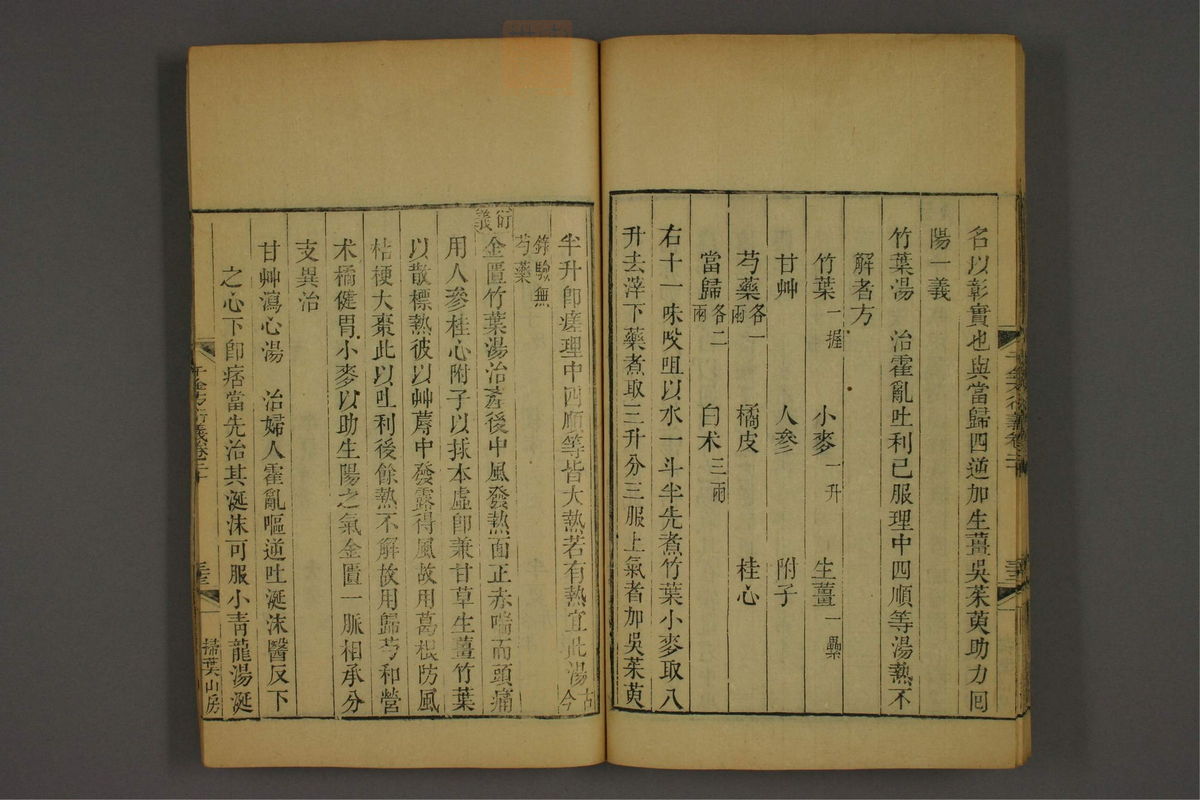 名以彰實也與當歸四逆加生薑吳茱萸助力回
陽一義
竹葉湯　治霍亂吐利已服理中四順等湯熱不
解者方
竹葉一握　小麥一升　生薑一纍
甘艸　人參　附子
芍藥各一兩　橘皮　桂心
當歸各二兩　白朮三兩
右十一味㕮咀以水一斗半先煮竹葉小麥取八
升去滓下藥煮取三升分三服上氣者加吳茱萸
半升卽瘥理中四順等皆大熱若有熱宜此湯古今
錄驗無芍藥
衍義
金匱竹葉湯治產後中風發熱面正赤喘而頭痛
用人參桂心附子以捄本虛卽兼甘草生薑竹葉
以散標熱彼以艸蓐中發露得風故用葛根防風
桔梗大棗此以吐利後餘熱不解故用歸芍和營
朮橘健胃小麥以助生陽之氣金匱一脈相承分
支異治
甘艸瀉心湯　治婦人霍亂嘔逆吐涎沫醫反下
之心下卽痞當先治其涎沫可服小青龍湯涎
千金方衍義卷二十
掃葉山房